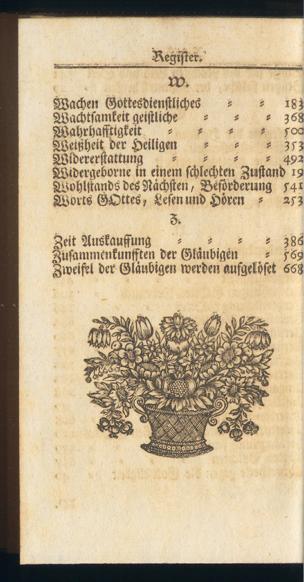 Register.
W.
Wachen Gottesdienstliches = = 183
Wachtsamkeit geistliche = = = 368
Wahrhafftigkeit = = = = 500
Weißheit der Heiligen = = = 353
Widererstattung = = = = 492
Widergeborne in einem schlechten Zustand 19
Wohlstands des Nächsten, Beförderung 541
Worts GOttes, Lesen und Hören = 253
Z.
Zeit Auskauffung = = = = 386
Zusammenkunfften der Gläubigen = 569
Zweifel der Gläubigen werden aufgelöset 668